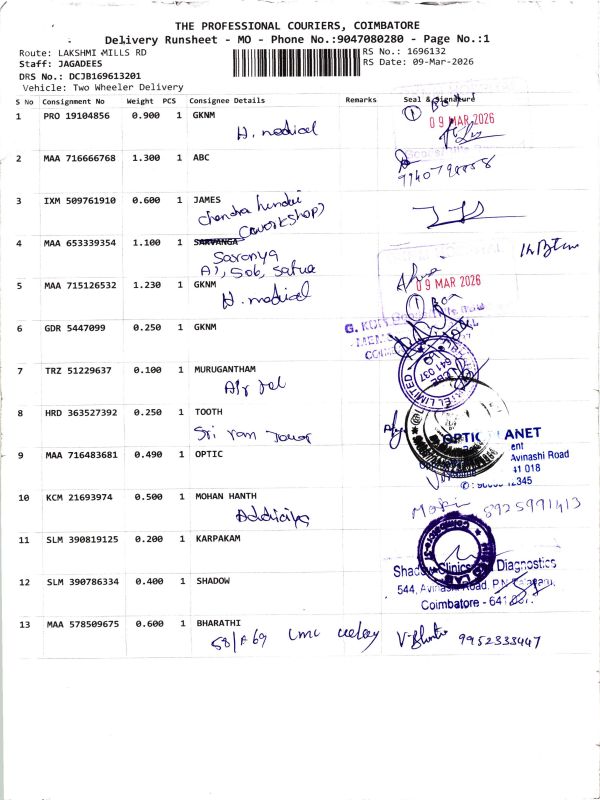 THE PROFESSIONAL COURIERS, COIMBATORE
Delivery Runsheet - MO - Phone No.:9047080280 - Page No.:1
Route: LAKSHMI MILLS RD
RS No.: 1696132
Staff: JAGADEES
RS Date: 09-Mar-2026
DRS No.: DCJB169613201
Vehicle: Two Wheeler Delivery
S No Consignment No Weight PCS Consignee Details Remarks Seal & Signature
1 PRO 19104856 0.900 1 GKNM
H. medical
09 MAR 2026
2 MAA 716666768 1.300 1 ABC
3 IXM 509761910 0.600 1 JAMES
chandra hundai
(workshop)
4 MAA 653339354 1.100 1 SARVANGA
Saranya
5 MAA 715126532 1.230 1 GKNM
H. medical
09 MAR 2026
6 GDR 5447099 0.250 1 GKNM
7 TRZ 51229637 0.100 1 MURUGANTHAM
641 037
8 HRD 363527392 0.250 1 TOOTH
Sri ram tower
OPTIC PLANET
9 MAA 716483681 0.490 1 OPTIC
Avinashi Road
41 018
10 KCM 21693974 0.500 1 MOHAN HANTH
8925991413
11 SLM 390819125 0.200 1 KARPAKAM
12 SLM 390786334 0.400 1 SHADOW
Diagnostics
544, Avinashi Road, P.N.
Coimbatore - 641
13 MAA 578509675 0.600 1 BHARATHI
9952333447